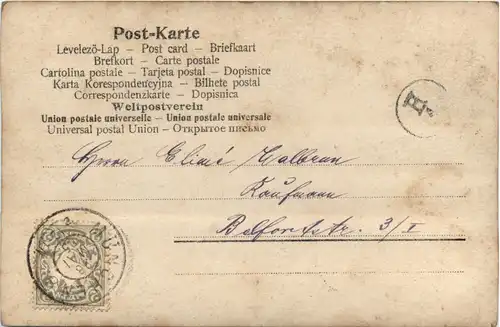 Post-Karte
Levelezö-Lap – Post card – Briefkaart
Brefkort – Carte postale
Cartolina postale – Tarjeta postal – Dopisnice
Karta Korespondencyjna – Bilhete postal
Correspondenzkarte – Dopisnica
Weltpostverein
Union postale universelle – Union postale universale
Universal postal Union – Открытое письмо
Herrn
Kaufmann
Belfortstr. 3/I